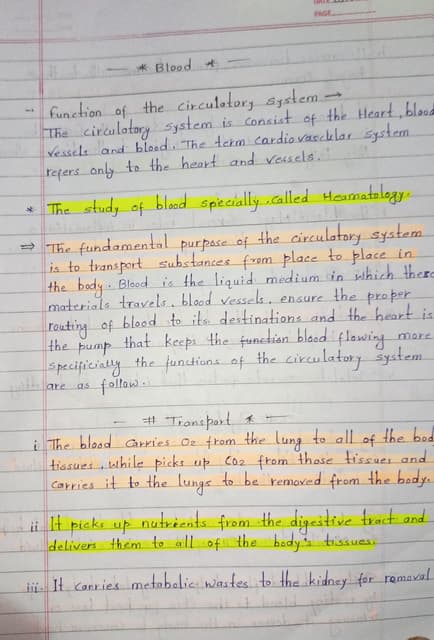 DATE
PAGE
* Blood *
- Function of the circulatory system →
The circulatory system is consist of the Heart, blood
vessels and blood. The term cardiovascklar system
refers only to the heart and vessels.
* The study of blood specially called Heamatology.
⇒ The fundamental purpose of the circulatory system
is to transport substances from place to place in
the body. Blood is the liquid medium in which these
materials travels. blood vessels. ensure the proper
routing of blood to its destinations and the heart is
the pump that keeps the function blood flowing more
specificially the functions of the circulatory system
are as follow.
# Transport *
i The blood carries O2 from the lung to all of the bod
tissues, while picks up CO2 from those tissues and
carries it to the lungs to be removed from the body.
ii It picks up nutrients from the digestive tract and
delivers them to all of the body's tissues.
iii. It carries metabolic wastes to the kidney for removal